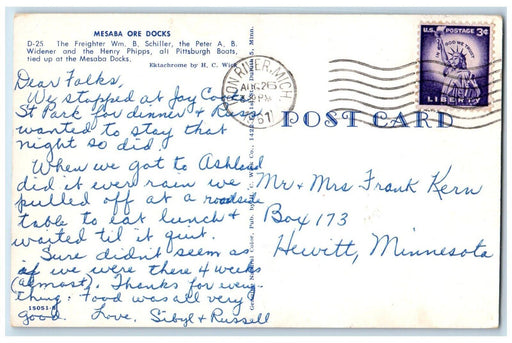 MESABA ORE DOCKS
D-25 The Freighter Wm. B. Schiller, the Peter A. B.
Widener and the Henry Phipps, all Pittsburgh Boats,
tied up at the Mesaba Docks.
Ektachrome by H. C. Wick
Dear Folks,
We stopped at Jay Cooke
St Park for dinner & Russ
wanted to stay that
night so did.
When we got to Ashland
did it ever rain we
pulled off at a roadside
table to eat lunch &
waited til it quit.
Sure didn't seem as
if we were there 4 weeks
(almost). Thanks for every-
thing. Food was all very
good. Love, Sibyl & Russell
1SOS1-R
IRON RIVER, MICH.
AUG 26
PM
U.S. POSTAGE 3¢
IN GOD WE TRUST
LIBERTY
POST CARD
Mr & Mrs Frank Kern
Box 173
Hewitt, Minnesota